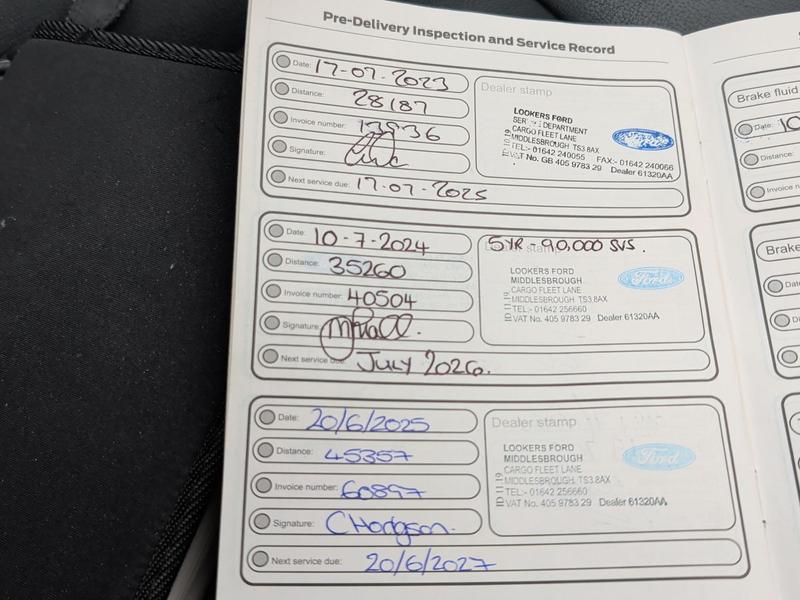 Pre-Delivery Inspection and Service Record
Date: 17-07-2023
Distance: 28187
Invoice number: 13936
Signature:
Next service due: 17-07-2025
Dealer stamp
LOOKERS FORD
DEPARTMENT
CARGO FLEET LANE
MIDDLESBROUGH TS3 8AX
TEL:- 01642 240055 FAX:- 01642 240066
VAT No. GB 405 9783 29 Dealer 61320AA
Ford
Date: 10-7-2024
Distance: 35260
Invoice number: 40504
Signature:
Next service due: July 2026.
5YR - 90,000 SVS.
LOOKERS FORD
MIDDLESBROUGH
CARGO FLEET LANE
MIDDLESBROUGH TS3 8AX
TEL:- 01642 256660
VAT No. 405 9783 29 Dealer 61320AA
ID 11 19
Ford
Date: 20/6/2025
Distance: 45357
Invoice number: 60897
Signature: C Hodgson.
Next service due: 20/6/2027
Dealer stamp
LOOKERS FORD
MIDDLESBROUGH
CARGO FLEET LANE
MIDDLESBROUGH TS3 8AX
TEL:- 01642 256660
VAT No. 405 9783 29 Dealer 61320AA
ID 11 19
Ford
Brake fluid
Date: 10
Distance:
Invoice n
Brake
Date
Di